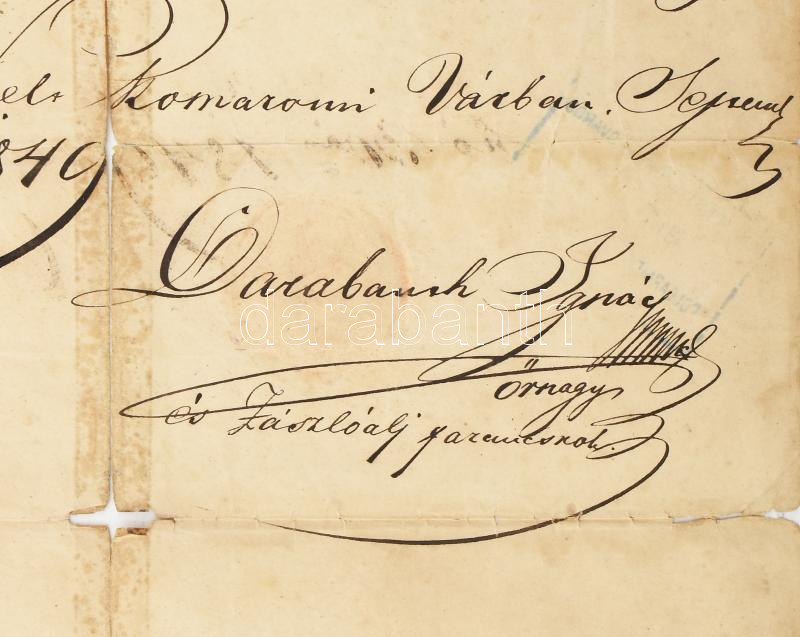 Komaromi Várban. Septemb
849
Darabanth Ignác
darabanth
őrnagy
és Zászlóalj parancsnok.